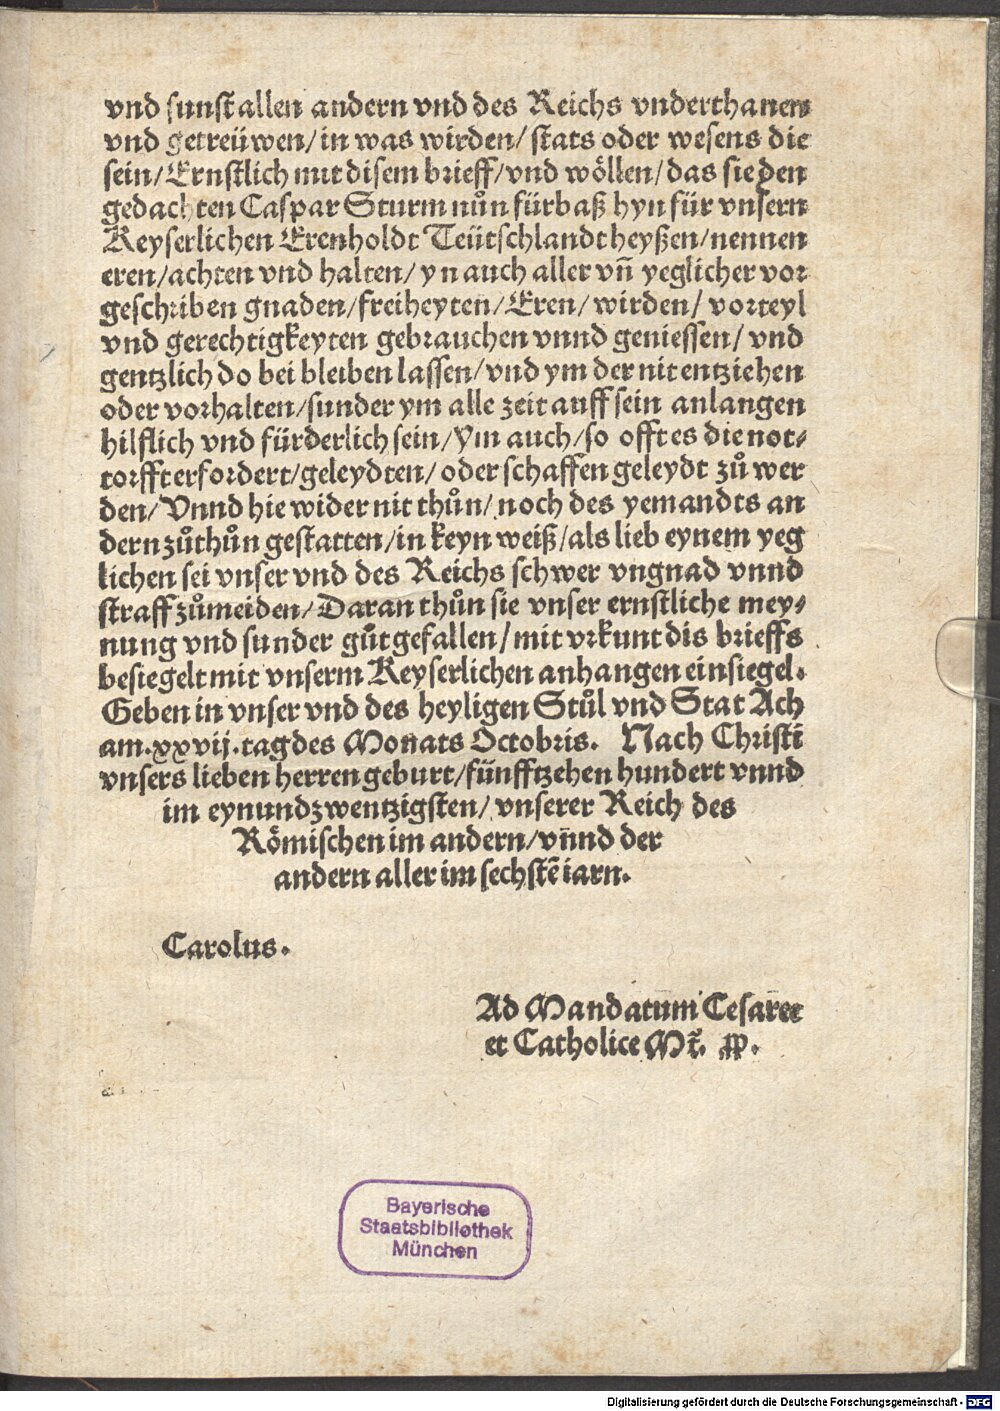 vnd sunst allen andern vnd des Reichs vnderthanen
vnd getreüwen/in was wirden/ stats oder wesens die
sein/Ernstlich mit disem brieff/vnd wöllen/das sie den
gedachten Caspar Sturm nůn fürbaß hyn für vnsern
Keyserlichen Erenholdt Teütschlandt heyßen/nennen
eren/achten vnd halten/ yn auch aller vñ yeglicher vor
geschriben gnaden/freiheyten/Eren/ wirden/ vorteyl
vnd gerechtigkeyten gebrauchen vnnd geniessen/ vnd
gentzlich do bei bleiben lassen/vnd ym der nit entziehen
oder vorhalten/sunder ym alle zeit auff sein anlangen
hilflich vnd fürderlich sein/Ym auch/so offt es die not⸗
torfft erfordert/geleydten/ oder schaffen geleydt zů wer
den/ Vnnd hie wider nit thůn/ noch des yemandts an
dern zůthůn gestatten/in keyn weiß/als lieb eynem yeg
lichen sei vnser vnd des Reichs schwer vngnad vnnd
straff zůmeiden/ Daran thůn sie vnser ernstliche mey⸗
nung vnd sunder gůt gefallen/mit vrkunt dis brieffs
besiegelt mit vnserm Keyserlichen anhangen einsiegel.
Geben in vnser vnd des heyligen Stůl vnd Stat Ach
am.xxvij.tag des Monats Octobris. Nach Christi
vnsers lieben herren geburt/fünfftzehen hundert vnnd
im eynundzwentzigsten/ vnserer Reich des
Römischen im andern/vñnd der
andern aller im sechstē iarn.
Carolus.
Ad Mandatum Cesaree
et Catholice Mt̃. ꝓp.
Bayerische
Staatsbibliothek
München
Digitalisierung gefördert durch die Deutsche Forschungsgemeinschaft - DFG